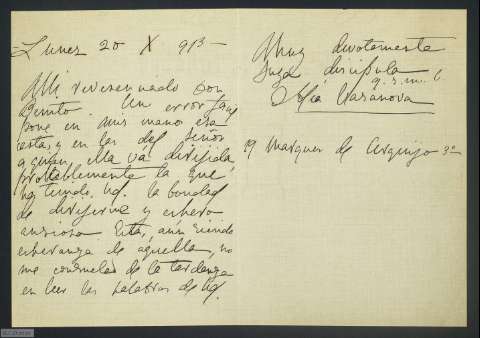 Lunes 20 X 913 –
Mi reverenciado Don
Benito. Un error
pone en mis manos esa
carta, y en las del señor
a quien ella va dirigida,
probablemente la que
ha tenido Ud. la bondad
de dirigirme y espero
ansiosa. Esta, aún siendo
esperanza de aquella, no
me consuela de la tardanza
en leer las palabras de Ud.
Muy devotamente
Suya discípula
q. s. m. b
Casanova
19 Marques de Urquijo 3º